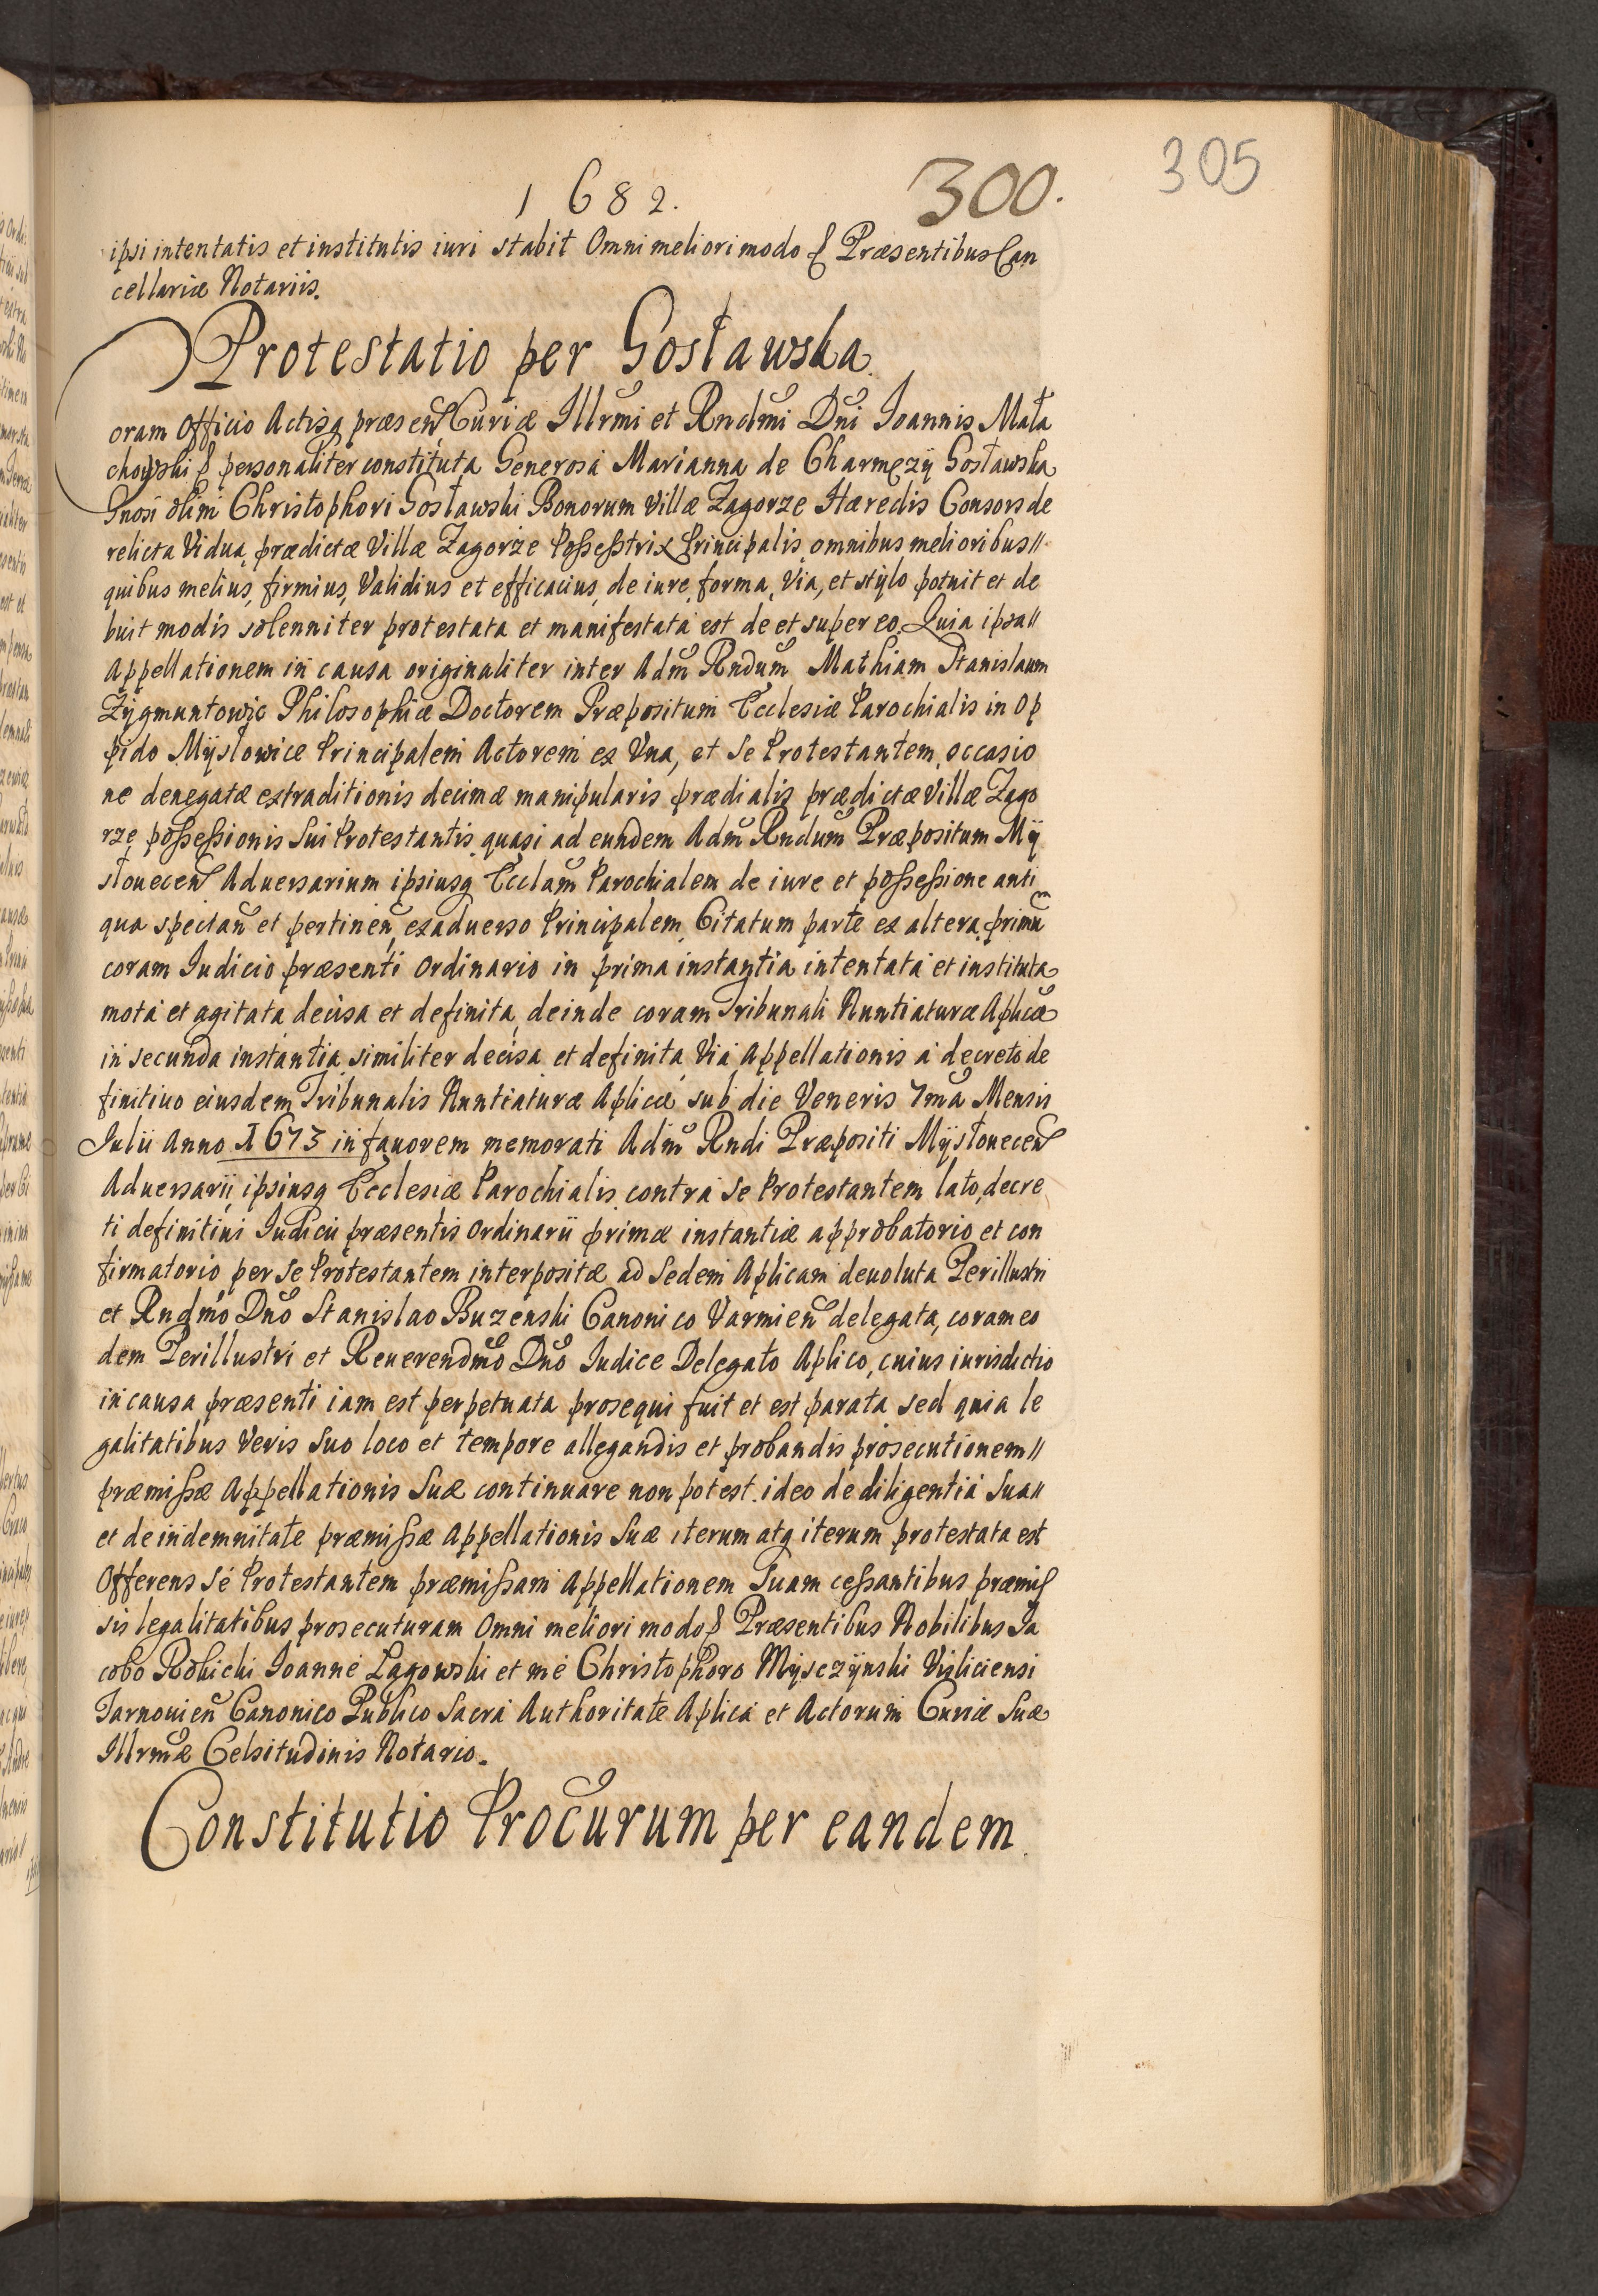 305
1682. 300.
ipsi intentatis et institutis iuri stabit Omni meliori modo & Præsentibus Can
cellariæ Notariis.
Protestatio per Gosławska.
Coram Officio Actisq præsen Curiæ Illrmi et Rndmi Dni Ioannis Mała
chowski & personaliter constituta Generosa Marianna de Charmęzÿ Gosławska
Gnosi olim Christophori Gosławski Bonorum Villæ Zagorze Hæredis Consors de
relicta Vidua, prædictæ Villæ Zagorze Possestrix Principalis omnibus melioribus //
quibus melius, firmius, Validius et efficacius, de iure, forma, Via, et stÿlo potuit et de
buit modis solenniter protestata et manifestata est de et super eo. Quia ipsa //
Appellationem in causa originaliter inter Adm Rndum Mathiam Stanislaum
Zÿgmuntowic Philosophiæ Doctorem Præpositum Ecclesiæ Parochialis in Op
pido Mÿsłowice Principalem Actorem ex Vna, et se Protestantem, occasio
ne denegatæ extraditionis decimæ manipularis prædialis prædictæ Villæ Zago
rze possessionis Sui Protestantis, quasi ad eundem Adm Rndum Præpositum Mÿ
słouecen Aduersarium ipsiusq Ecclam Parochialem de iure et possessione anti
qua spectan et pertinen, ex aduerso Principalem Citatum parte ex altera, primum
coram Iudicio præsenti Ordinario in prima instantia intentata et instituta
mota et agitata decisa et definita, deinde coram Tribunali Nuntiaturæ Aplicæ
in secunda instantia similiter decisa et definita Via Appellationis a decreto de
finitiuo eiusdem Tribunalis Nuntiaturæ Aplicæ sub die Veneris 7ma Mensis
Iulii Anno 1673 in fauorem memorati Adm Rndi Præpositi Mÿsłouecen
Aduersarii, ipsiusq Ecclesiæ Parochialis contra se Protestantem lato, decre
ti definitiui Iudicii præsentis Ordinarii primæ instantiæ approbatorio et con
firmatorio per se Protestantem interpositæ ad Sedem Aplicam deuoluta Perillustri
et Rndmo Dno Stanislao Buzenski Canonico Varmien delegata, coram eo
dem Perillustri et Reuerendmo Dno Iudice Delegato Aplico, cuius iurisdictio
in causa præsenti iam est perpetuata prosequi fuit et est parata sed quia le
galitatibus Veris suo loco et tempore allegandis et probandis prosecutionem //
præmissæ Appellationis Suæ continuare non potest. ideo de diligentia Sua //
et de indemnitate præmissæ Appellationis Suæ iterum atq iterum protestata est
Offerens se Protestantem præmissam Appellationem Suam cessantibus præmis
sis legalitatibus prosecuturam Omni meliori modo & Præsentibus Nobilibus Ia
cobo Robicki Ioanne Lagowski et me Christophoro Mÿsczÿnski Visliciensi
Tarnouien Canonico Publico Sacra Authoritate Aplica et Actorum Curiæ Suæ
Illrmæ Celsitudinis Notario.
Constitutio Procurum per eandem.